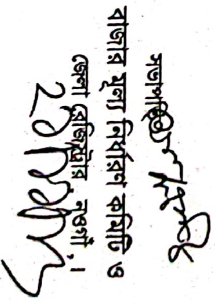 সভাপতি
বাজার মূল্য নির্ধারণ কমিটি ও
জেলা রেজিস্ট্রার নওগাঁ ।